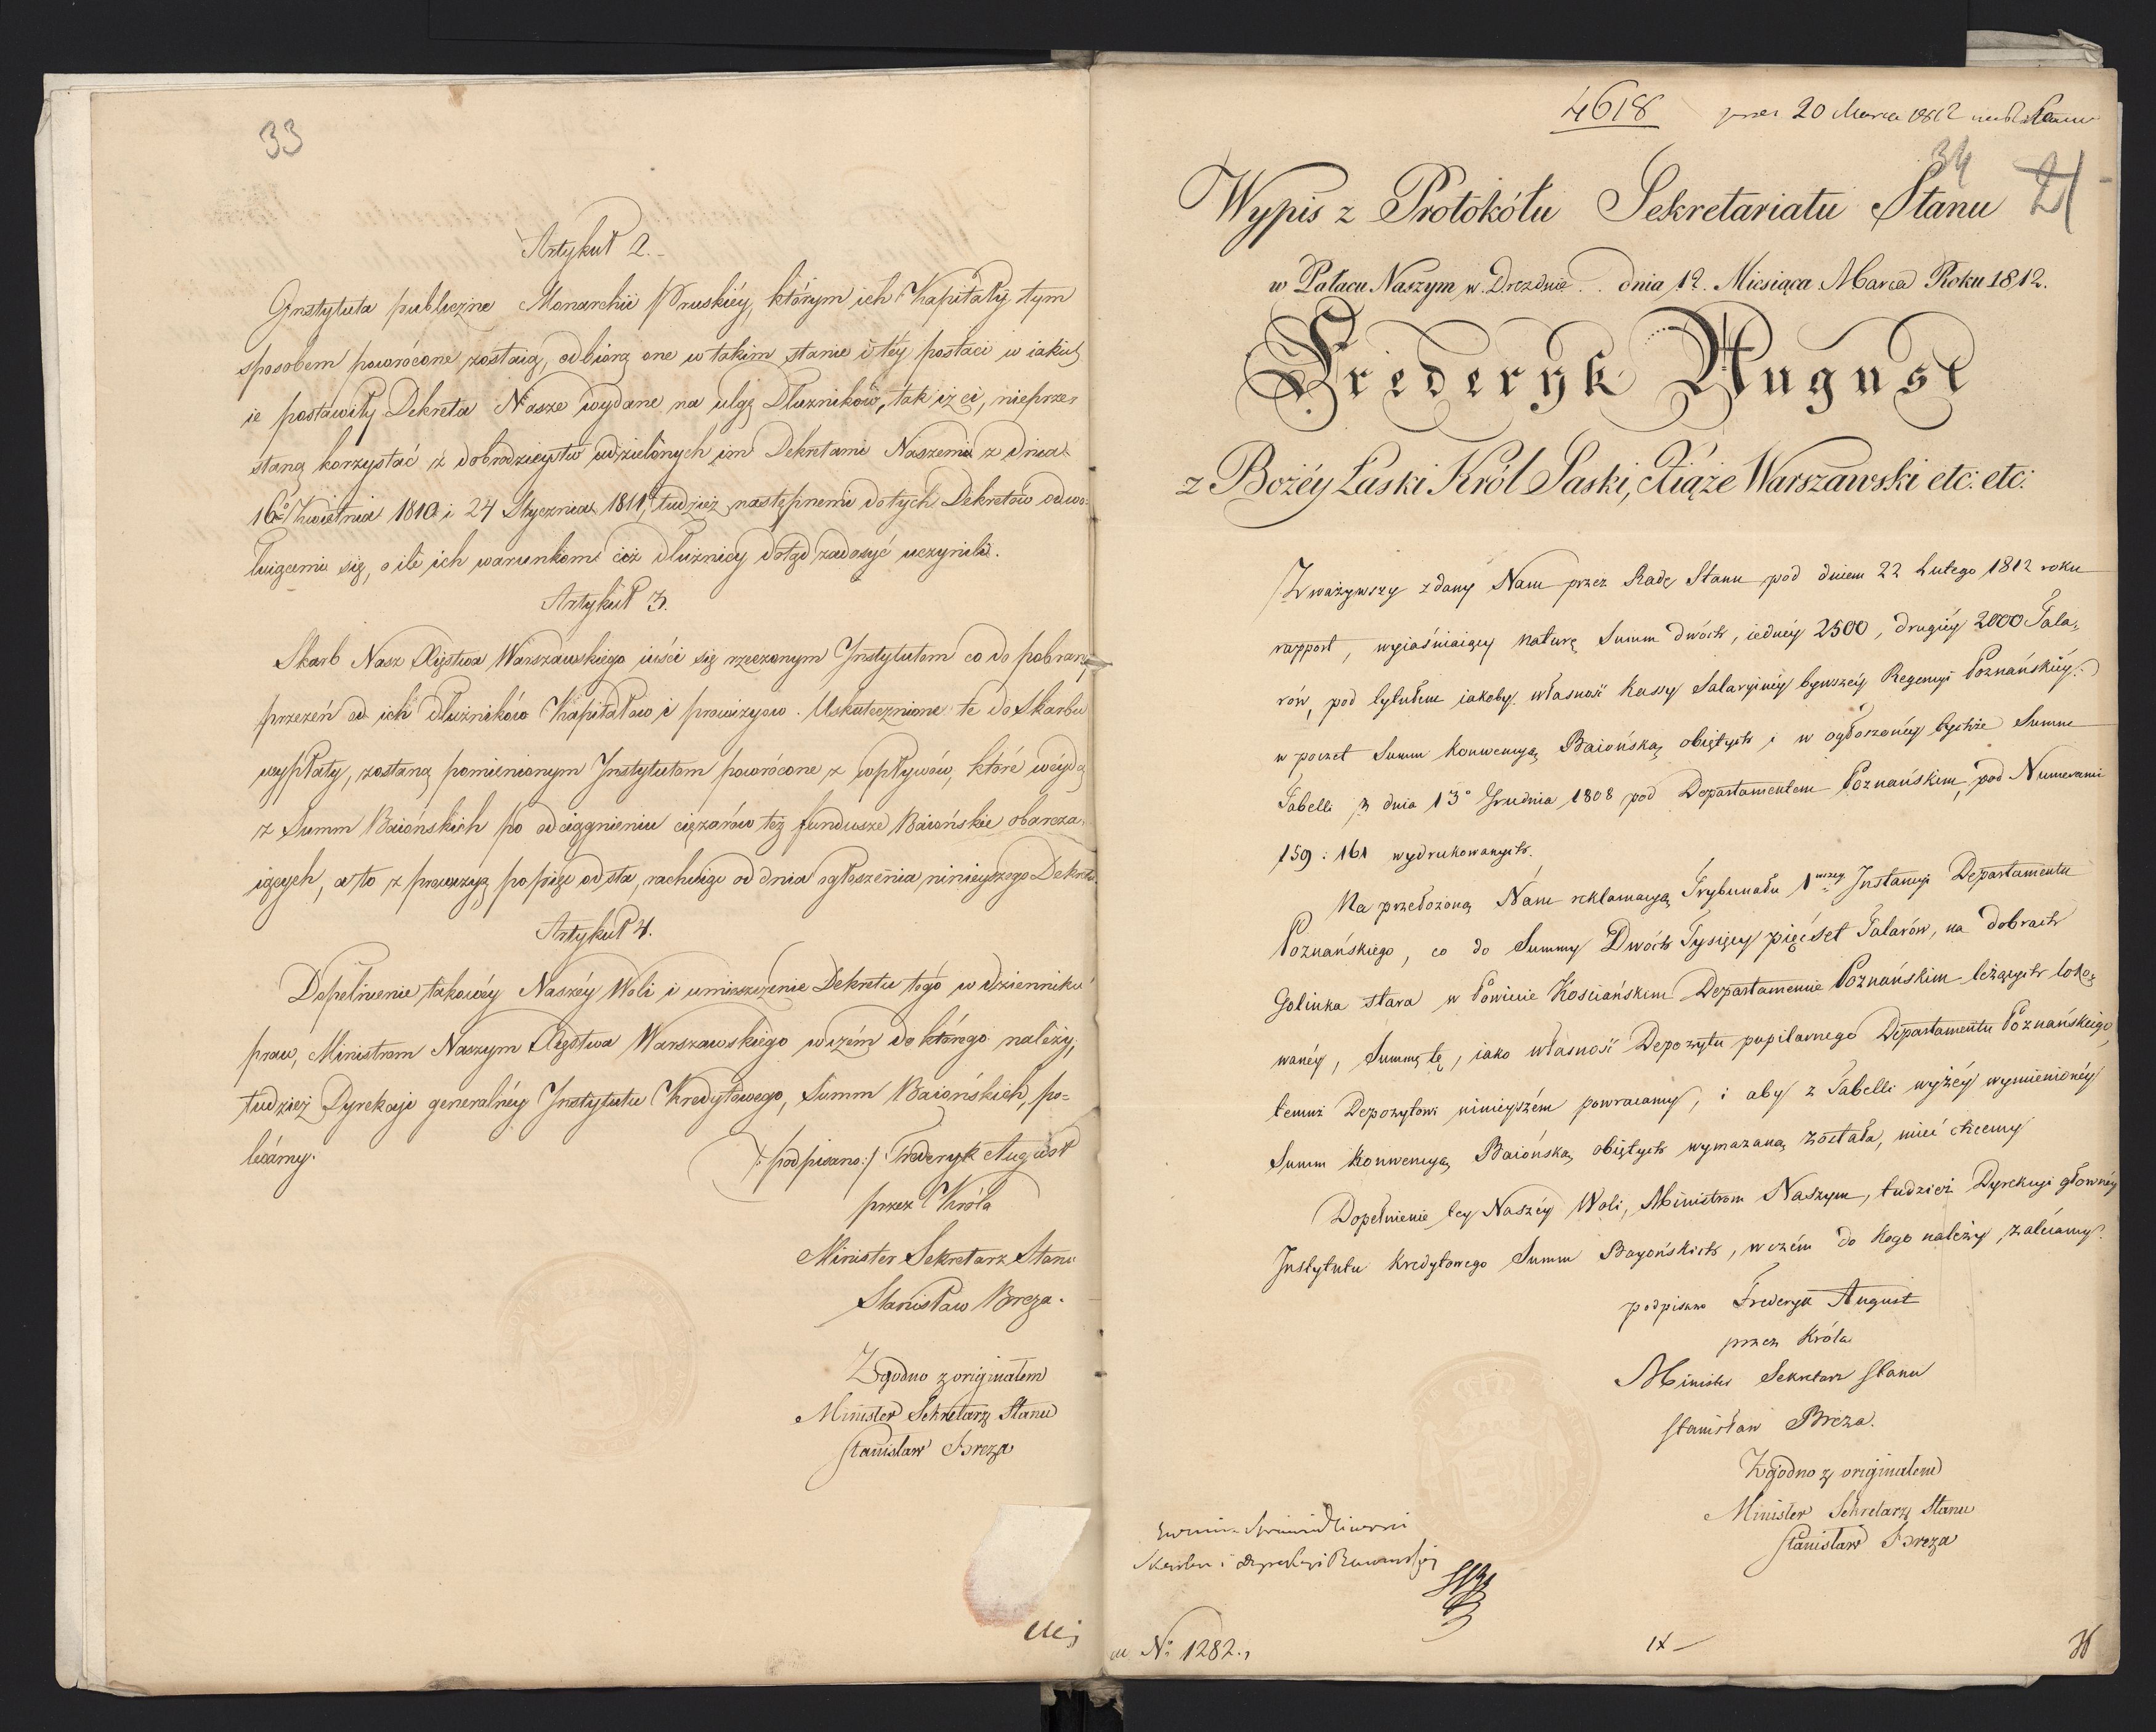 33
Artykuł 2.
Instytuta publiczne Monarchii Pruskiéy, którym ich Kapitały tym
sposobem powrócone zostaią, odbiorą one w takim stanie i téy postaci w iakiéy
ie postawiły Dekreta Nasze wydane na ulgę Dłużników, tak iż ci, nieprze-
staną korzystać z dobrodzieystw udzielonych im Dekretami Naszemi z dnia
16º Kwietnia 1810 i 24 Stycznia 1811, tudzież następnemi do tych Dekretów odwo-
łuiącemi się, o ile ich warunkom ciż dłużnicy dotąd zadosyć uczynili.
Artykuł 3.
Skarb Nasz Xięstwa Warszawskiego iuści się rzeczonym Instytutom co do pobrany
przezeń od ich dłużników Kapitałów i prowizyow. Uskutecznione te do Skarbu
wypłaty, zostaną pomienionym Instytutom powrócone z wpływów, które wéydą
z Summ Baiońskich po odciągnieniu ciężarów też fundusze Baiońskie obarcza-
iących, a to z prowizyą po pięć od sta, rachuiąc od dnia ogłoszenia ninieyszego Dekretu.
Artykuł 4.
Dopełnienie takowéy Naszéy Woli i umieszczenie Dekretu tego w dzienniku
praw, Ministrom Naszym Xięstwa Warszawskiego w czém do którego należy,
tudzież Dyrekcyi generalnéy Instytutu Kredytowego, Summ Baiońskich, po-
lécamy.
/: podpisano :/ Frederyk August
przez Króla
Minister Sekretarz Stanu
Stanisław Breza.
Zgodno z originałem
Minister Sekretarz Stanu
Stanisław Breza
4618 20 Marca 1812
34
21
Wypis z Protokółu Sekretariatu Stanu
w Pałacu Naszym w Dreznie . . dnia 12. Miesiąca Marca Roku 1812.
Frederyk August
z Bożéy Łaski Król Saski, Xiąże Warszawski etc: etc:
Zważywszy zdany Nam przez Radę Stanu pod dniem 22 Lutego 1812 roku
rapport, wyiaśniaiący naturę Summ dwóch, iednéy 2500, drugiéy 2000 Tala-
rów, pod tytułem iakoby własność Kassy Salaryinéy bywszéy Regencyi Poznańskiéy
w poczet Summ Konwencyą Baiońską obiętych i w ogłoszonéy tychże Summ
Tabelli z dnia 13º Grudnia 1808 pod Departamentem Poznańskim, pod Numerami
159 : 161 wydrukowanych.
Na przełożoną Nam reklamacyą Trybunału 1wszey Instancyi Departamentu
Poznańskiego, co do Summy Dwóch Tysięcy pięćset Talarów, na dobrach
Golinka stara w Powiecie Kościańskim Departamencie Poznańskim leżących loko-
wanéy, Summę tę, iako własność Depozytu pupilarnego Departamentu Poznańskiego,
temuż Depozytowi ninieyszém powracamy, i aby z Tabelli wyżéy wymienionéy
Summ Konwencyą Baiońską obiętych wymazaną została, mieć chcemy
Dopełnienie tey Naszéy Woli, Ministrom Naszym, tudzież Dyrekcyi głownéy
Instytutu Kredytowego Summ Bayońskich, w czém do kogo należy zalécamy.
podpisano Frederyk August
przez Króla
Minister Sekretarz Stanu
Stanisław Breza.
Zgodno z originałem
Minister Sekretarz Stanu
Stanisław Breza
Nº 1282.
IX